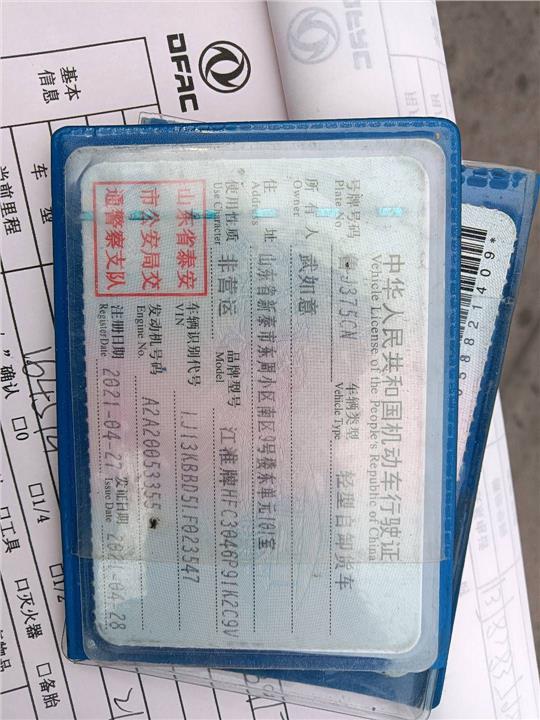 中华人民共和国机动车行驶证
Vehicle License of the People's Republic of China
号牌号码 J375CN 车辆类型 轻型自卸货车
Plate No. Vehicle Type
所有人 武如意
Owner
住址 山东省新泰市东周小区南区9号楼东单元101室
Address
使用性质 非营运 品牌型号 江淮牌HFC3046P91K2C9V
Use Character Model
山东省泰安
市公安局交
通警察支队
车辆识别代号 LJ13KBBD5LF023547
VIN
发动机号码 A2A20053355
Engine No.
注册日期 2021-04-27 发证日期 2021-04-28
Register Date Issue Date
DFAC
基本
信息
车型
当前里程
确认 □0 □1/4 □1/2
□工具 □灭火器 □备胎
58821409*